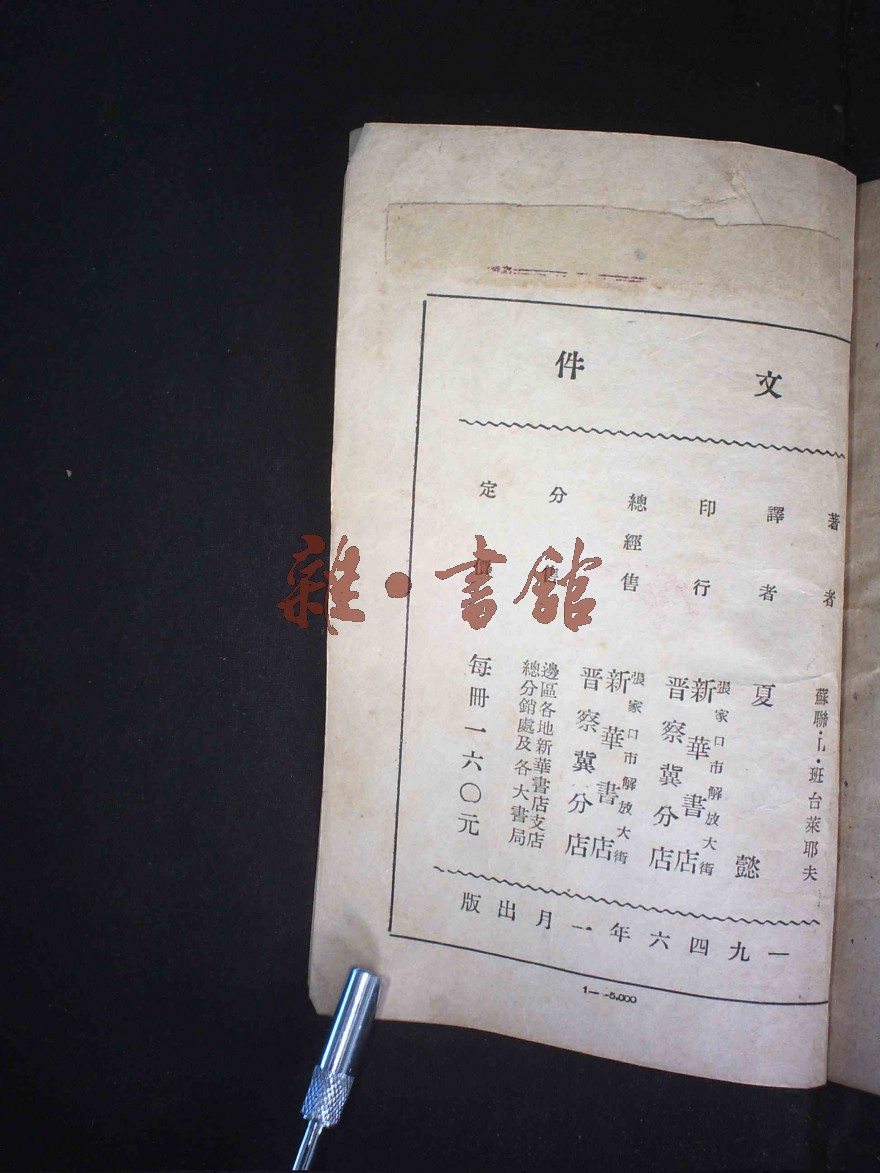 文件
著者 蘇聯·L·班台萊耶夫
譯者 夏懿
印行 張家口市解放大街
新華書店
晋察冀分店
總經售 張家口市解放大街
新華書店
晋察冀分店
分售 邊區各地新華書店支店
總分銷處及各大書局
定價 每冊一六〇元
一九四六年一月出版
1—5,000
雜·書館